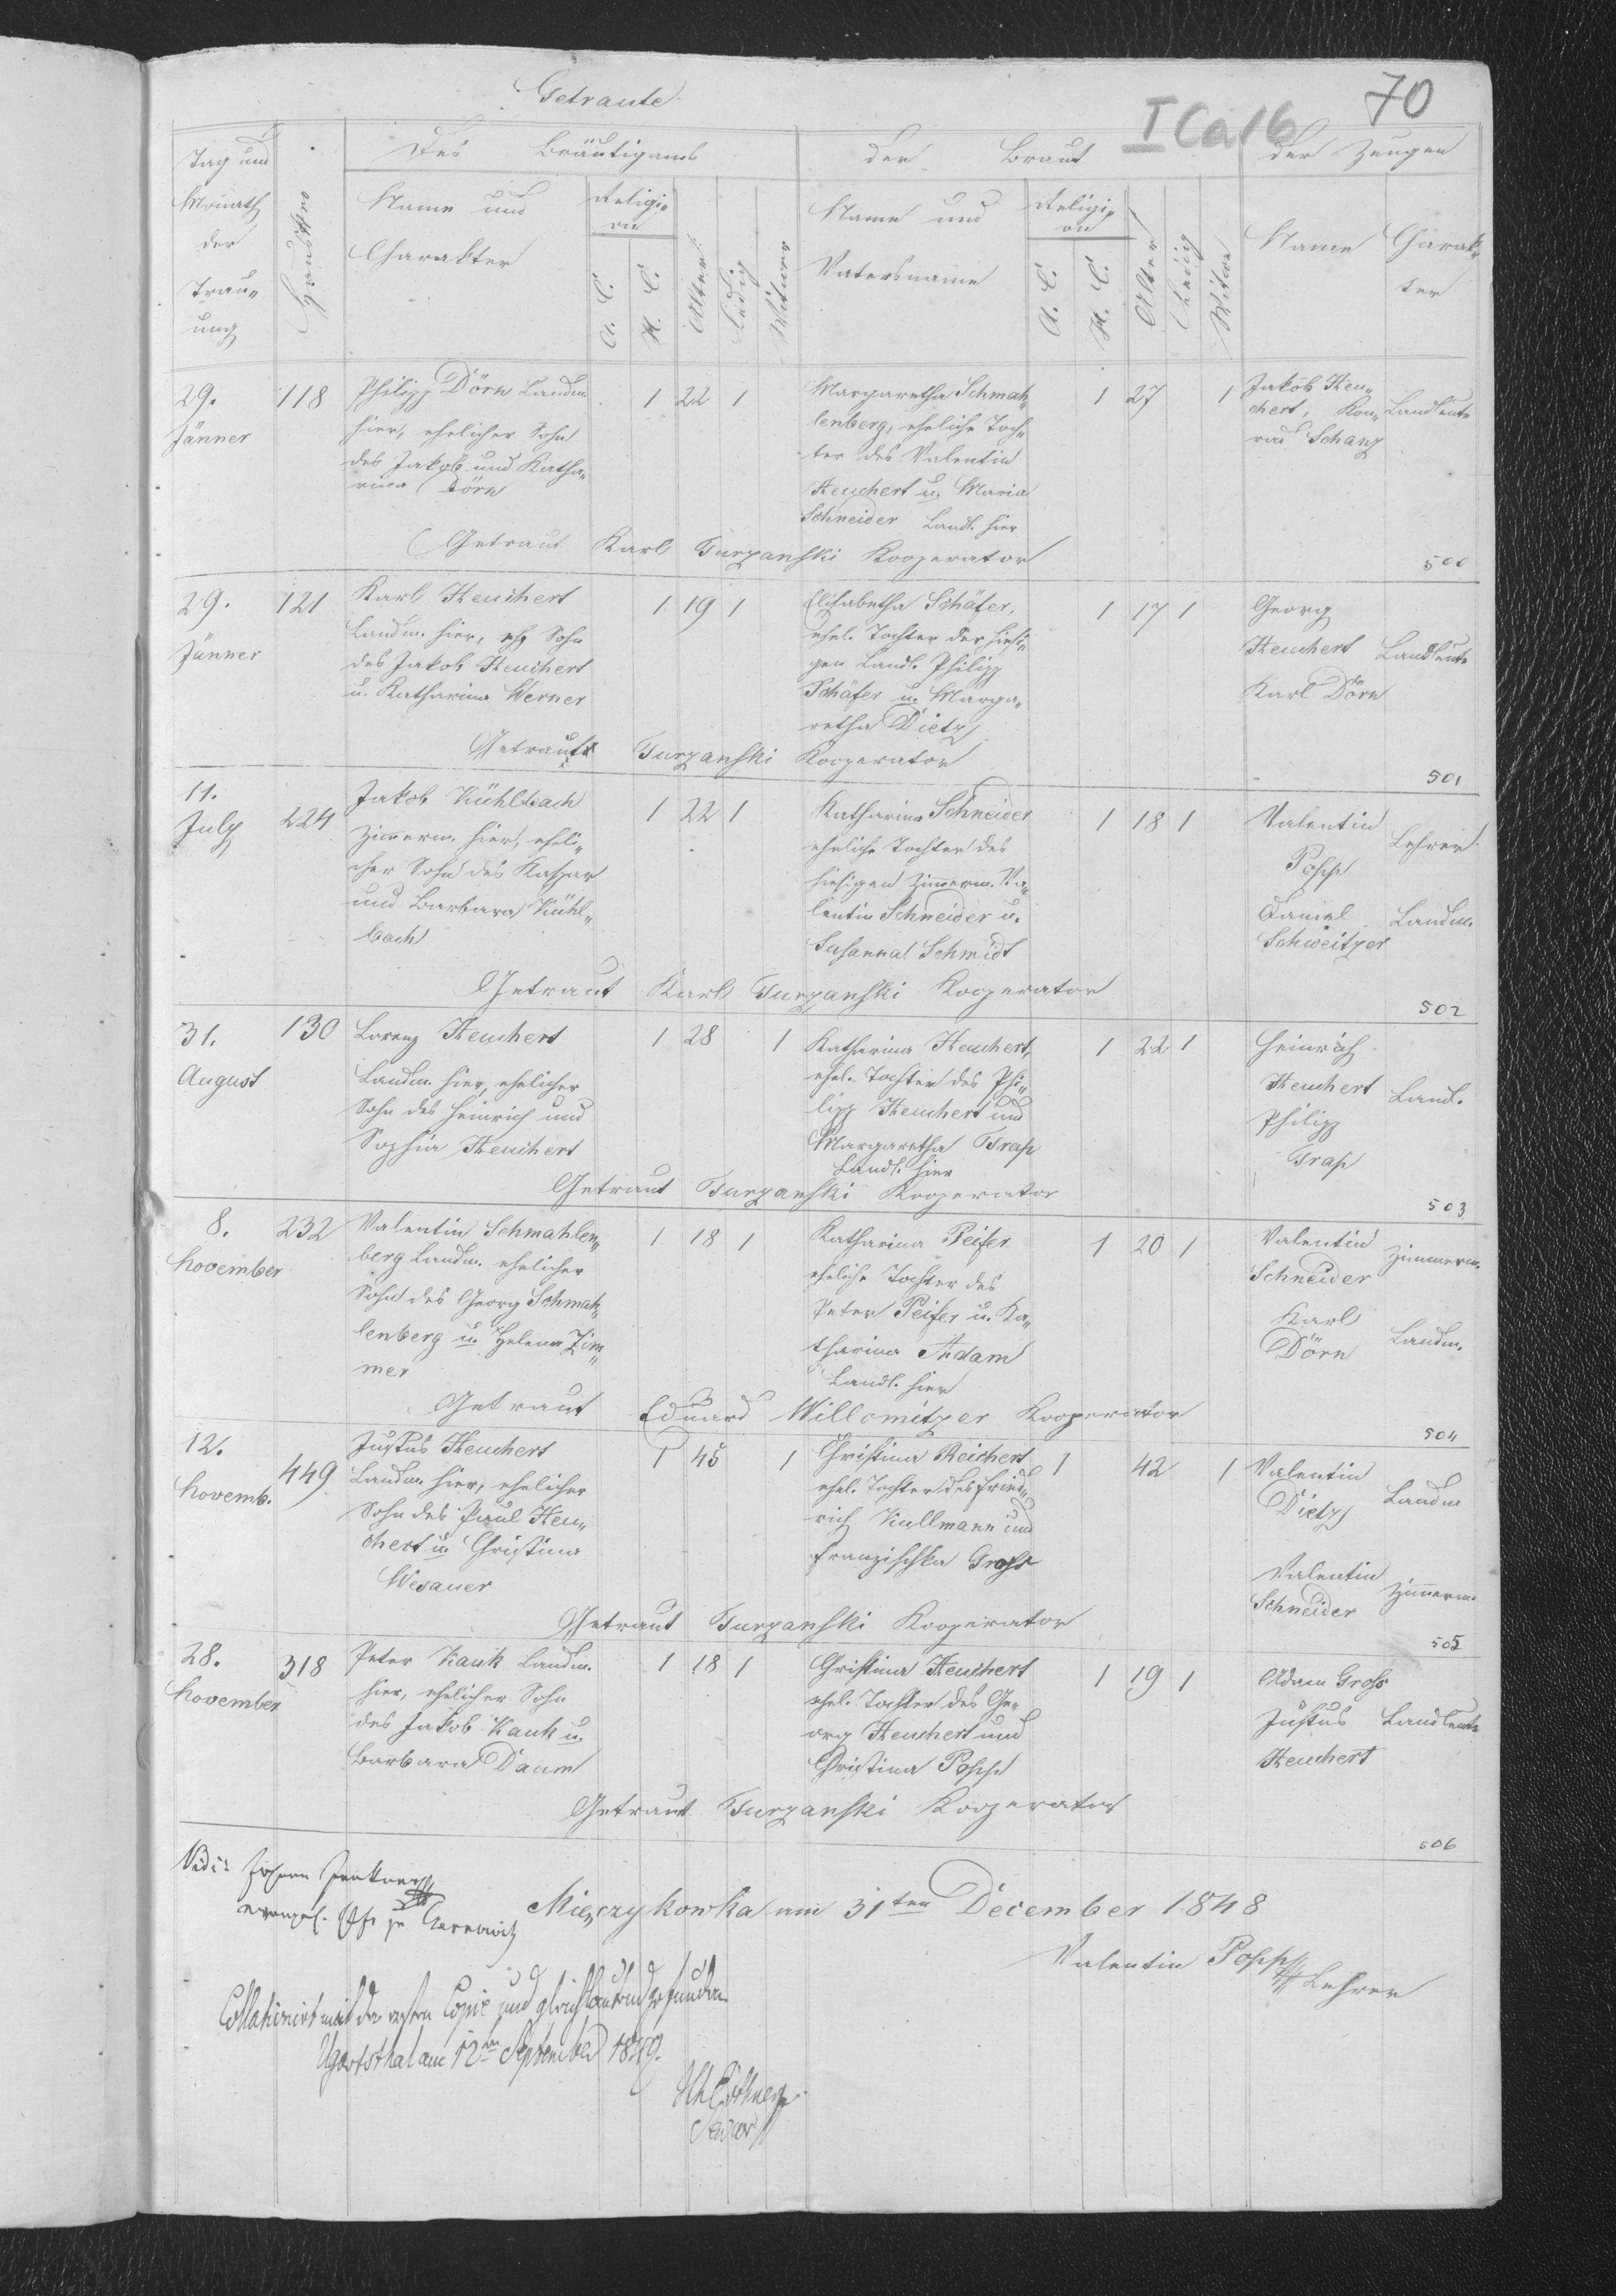 Getraute
70
I Ca 16
Tag und Monath der Trau„ ung
Hausnro
Des Bräutigams
der Braut
der Zeugen
Name und Charakter
Religi„ on
A. C.
H. C.
Alter
Ledig
Witwer
Name und Vatersname
Religi„ on
A. C.
H. C.
Alter
Ledig
Witwe
Name
Charak„ ter
29. Jänner
118
Philipp Dörn Landm.
hier, ehelicher Sohn
des Jakob und Katha„
rina Dörn
1 22 1
Margaretha Schmah„
lenberg, eheliche Toch„
ter des Valentin
Heuchert u. Maria
Schneider Landl. hier
1 27 1
Jakob Heu„
chert, Kon„ Landleute
rad Schanz
Getraut Karl Turzanski Kooperator
500
29. Jänner
121
Karl Heuchert
Landm. hier, ehl Sohn
des Jakob Heuchert
u. Katharina Werner
1 19 1
Elisabetha Schäfer,
ehel. Tochter der hiesi„
gen Landl. Philipp
Schäfer u. Marga„
retha Dietz
1 17 1
Georg
Heuchert Landleute
Karl Dörn
Getraut Turzanski Kooperator
501
11. July
224
Jakob Kühlbach
Zimmerm. hier, eheli„
cher Sohn des Kaspar
und Barbara Kühl„
bach
1 22 1
Katharina Schneider
eheliche Tochter des
hiesigen Zimmerm. Va„
lentin Schneider u.
Susanna Schmidt
1 18 1
Valentin
Popp Lehrer
Daniel
Schweitzer Landm.
Getraut Karl Turzanski Kooperator
502
31. August
130
Lorenz Heuchert
Landm. hier, ehelicher
Sohn des Heinrich und
Sophia Heuchert
1 28 1
Katharina Heuchert,
ehel. Tochter des Phi„
lipp Heuchert und
Margaretha Trap
Landl. hier
1 22 1
Heinrich
Heuchert Landl.
Philipp
Trap
Getraut Turzanski Kooperator
503
8. November
232
Valentin Schmahlen„
berg Landm. ehelicher
Sohn des Georg Schmah„
lenberg u. Helena Zim„
mer
1 18 1
Katharina Peifer
eheliche Tochter des
Peter Peifer u. Ka„
tharina Adam
Landl. hier
1 20 1
Valentin
Schneider Zimmerm.
Karl
Dörn Landm.
Getraut Eduard Willomitzer Kooperator
504
12. Novemb.
449
Justus Heuchert
Landm. hier, ehelicher
Sohn des Paul Heu„
chert u. Christina
Wesauer
1 45 1
Christina Reichert
ehel. Tochter des Fried„
rich Kullmann und
Franzischka Groß
1 42 1
Valentin
Dietz Landm
Valentin
Schneider Zimmerm.
Getraut Turzanski Kooperator
505
28. November
318
Peter Kauk Landm.
hier, ehelicher Sohn
des Jakob Kauk u.
Barbara Daum
1 18 1
Christina Heuchert
ehel. Tochter des Ge„
org Heuchert und
Christina Popp
1 19 1
Adam Groß
Justus Landleute
Heuchert
Getraut Turzanski Kooperator
506
Vidi: Johann
evangel.
Mienczykowka am 31ten December 1848
Valentin Popp
Lehrer
Collationirt mit der ersten Copie und gleichlautend gefunden
Ugartsthal am 12ten September 1849.
Senior